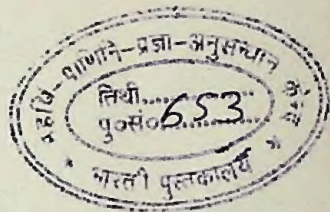 महर्षि-पाणिनि-प्रज्ञा-अनुसन्धान केन्द्र
तिथी............
पु०सं० 653
* भारती पुस्तकालय *